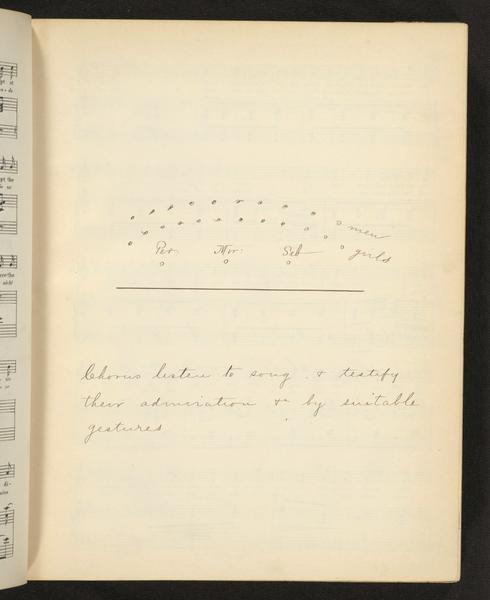 men
girls
Per. Mir: Seb
Chorus listen to song & testify
their admiration &c by suitable
gestures